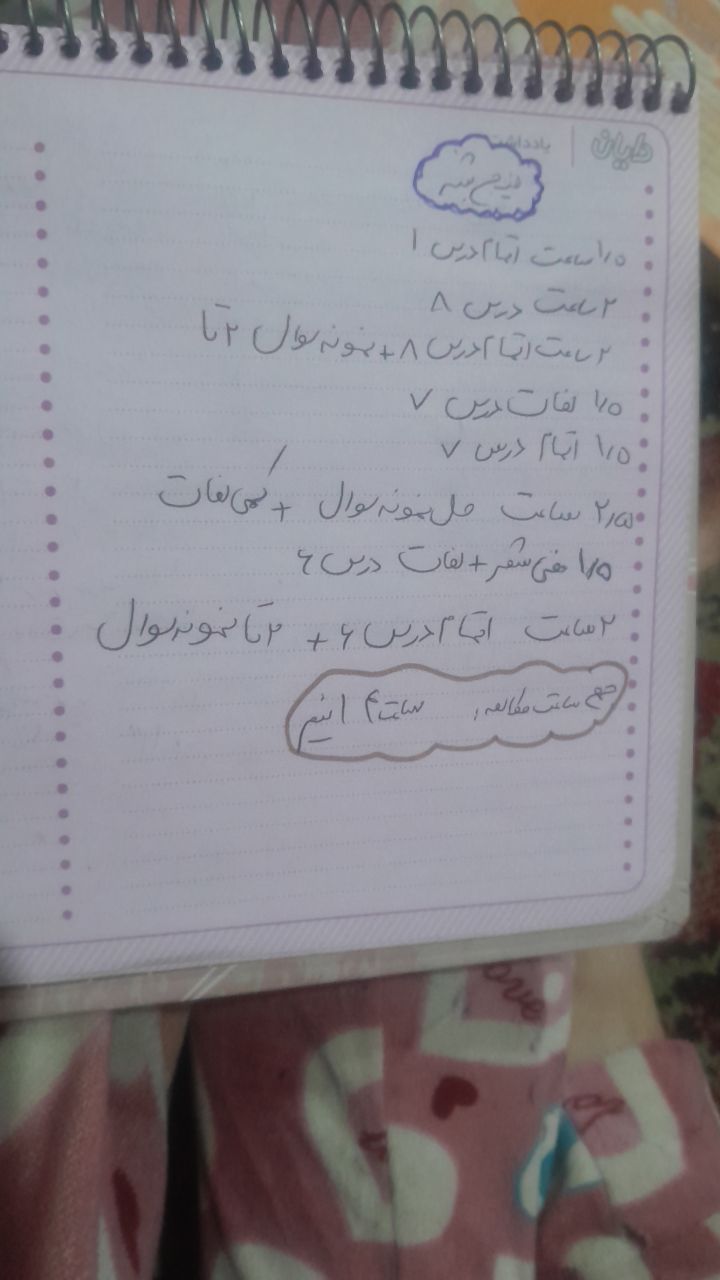 طایان | یادداشت
پنج شنبه
۱/۵ ساعت اتمام درس ۱
۲ ساعت درس ۸
۲ ساعت اتمام درس ۸ + نمونه سوال ۲ تا
۱/۵ لغات درس ۷
۱/۵ اتمام درس ۷
۲/۵ ساعت حل نمونه سوال + کمی لغات
۱/۵ حفظی شعر + لغات درس ۶
۲ ساعت اتمام درس ۶ + ۲ تا نمونه سوال
جمع ساعت مطالعه: ساعت ۱۴ نیم
love